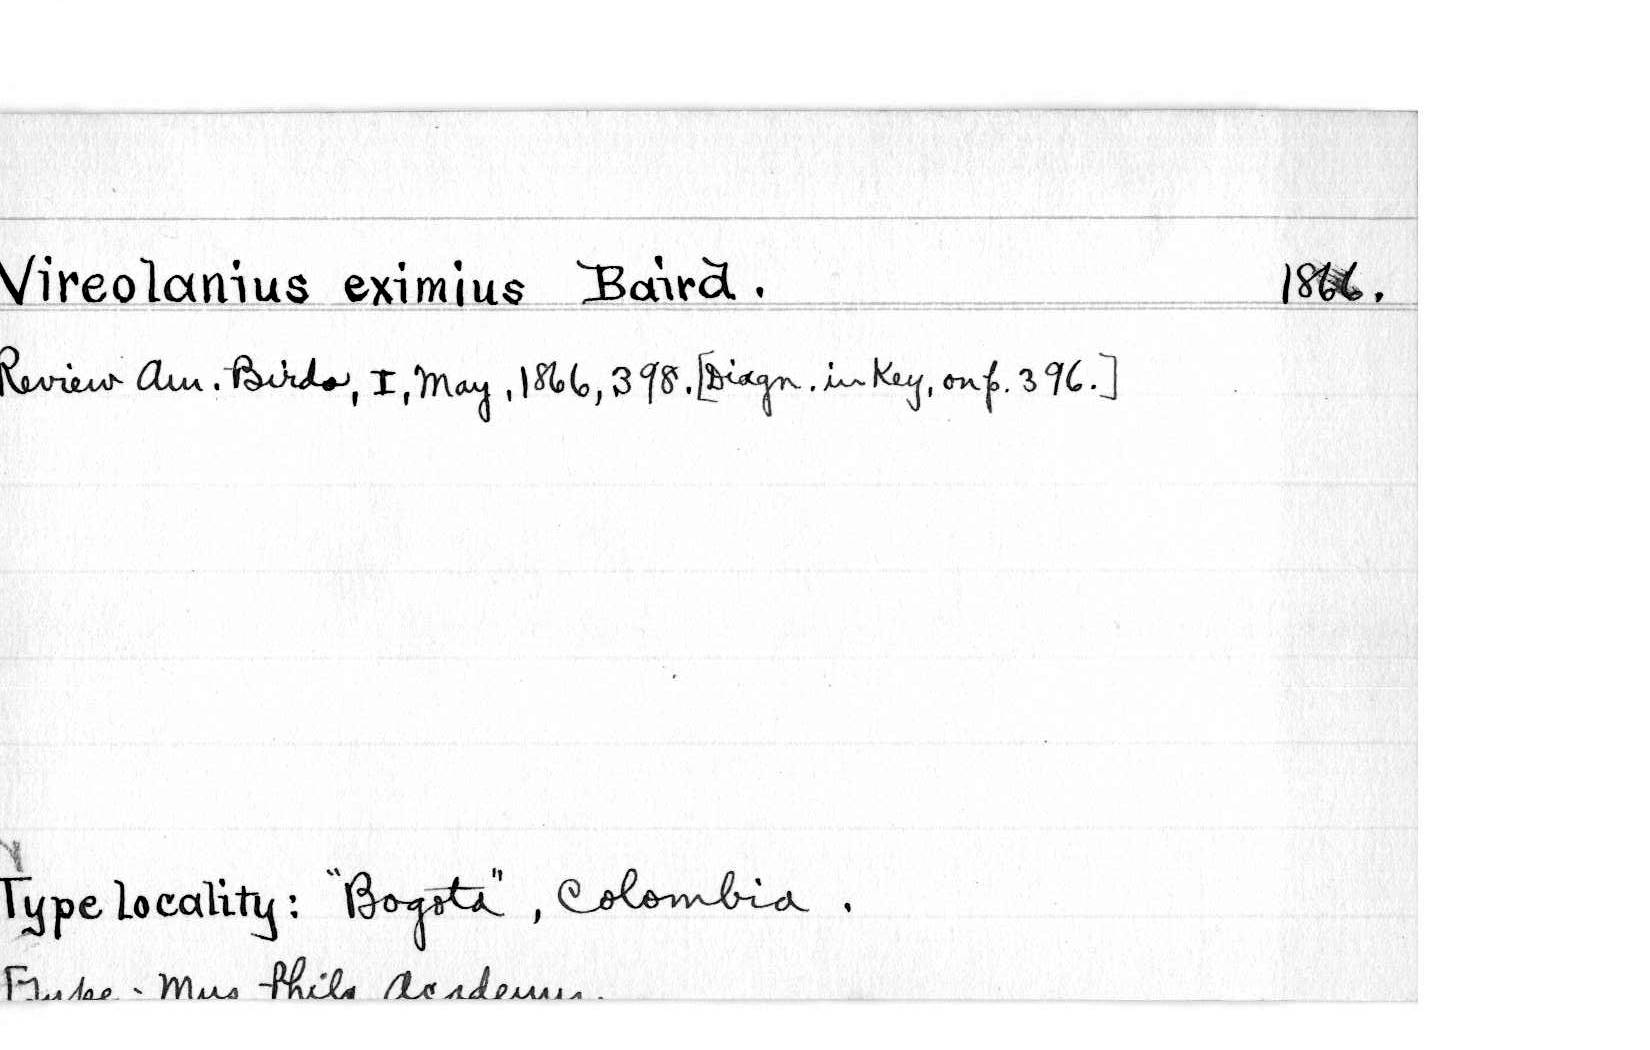 Vireolanius eximius Baird. 1866.
Review Am. Birds, I, May, 1866, 398. [Diagn. in Key, on p. 396.]
Type locality: "Bogotá", Colombia.
Type - Mus Phila Academy.